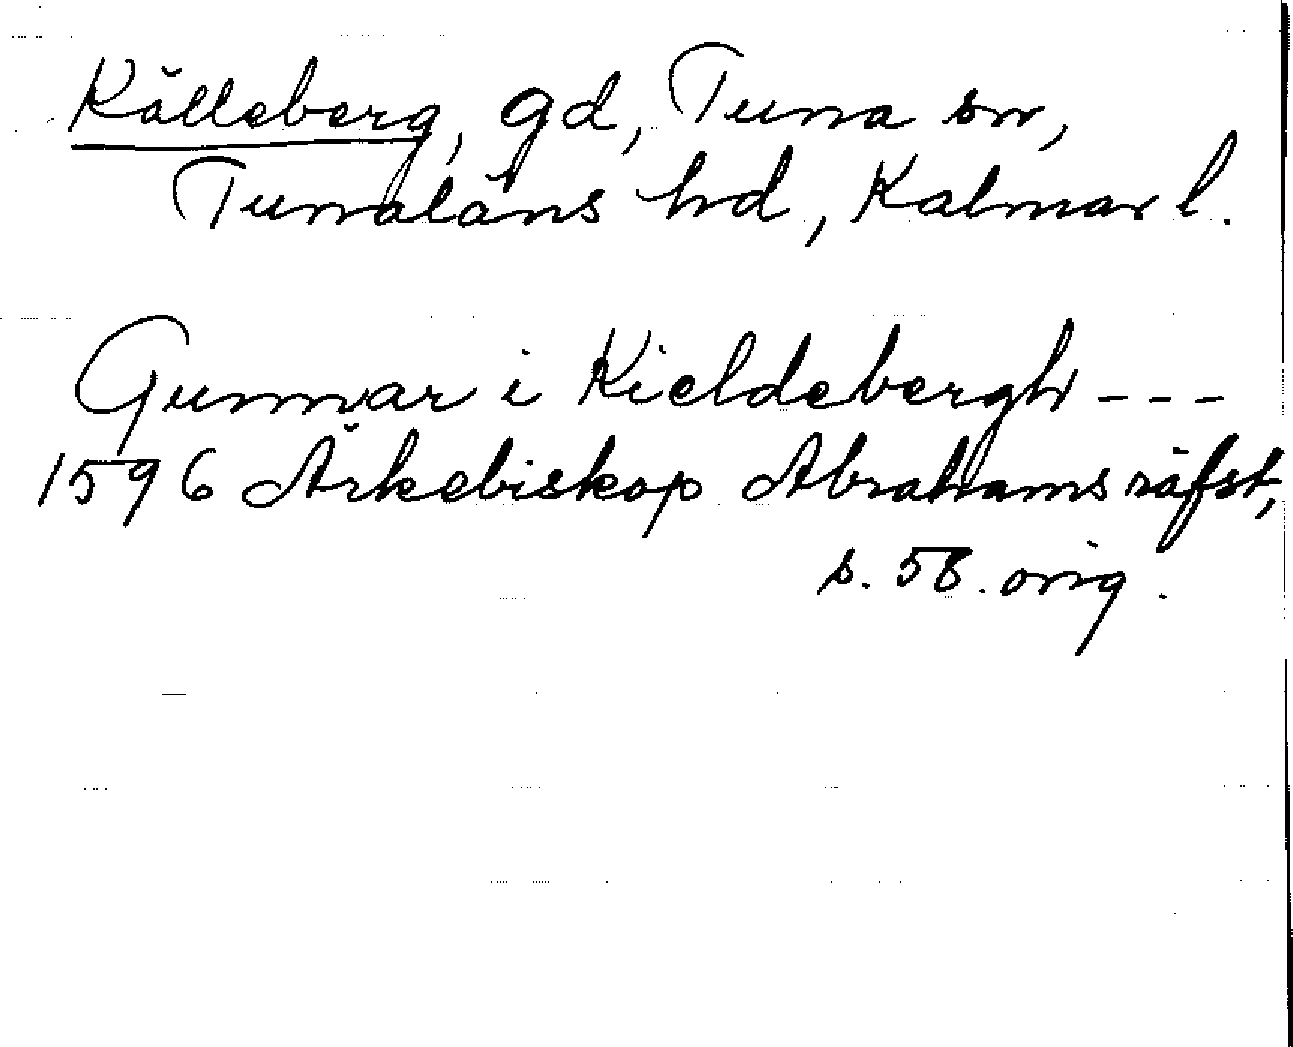 Källeberg, gd, Tuna sn,
Tunaläns hd, Kalmar l.
Gunnar i Kieldebergh ---
1596 Ärkebiskop Abrahams räfst,
s. 58. orig.